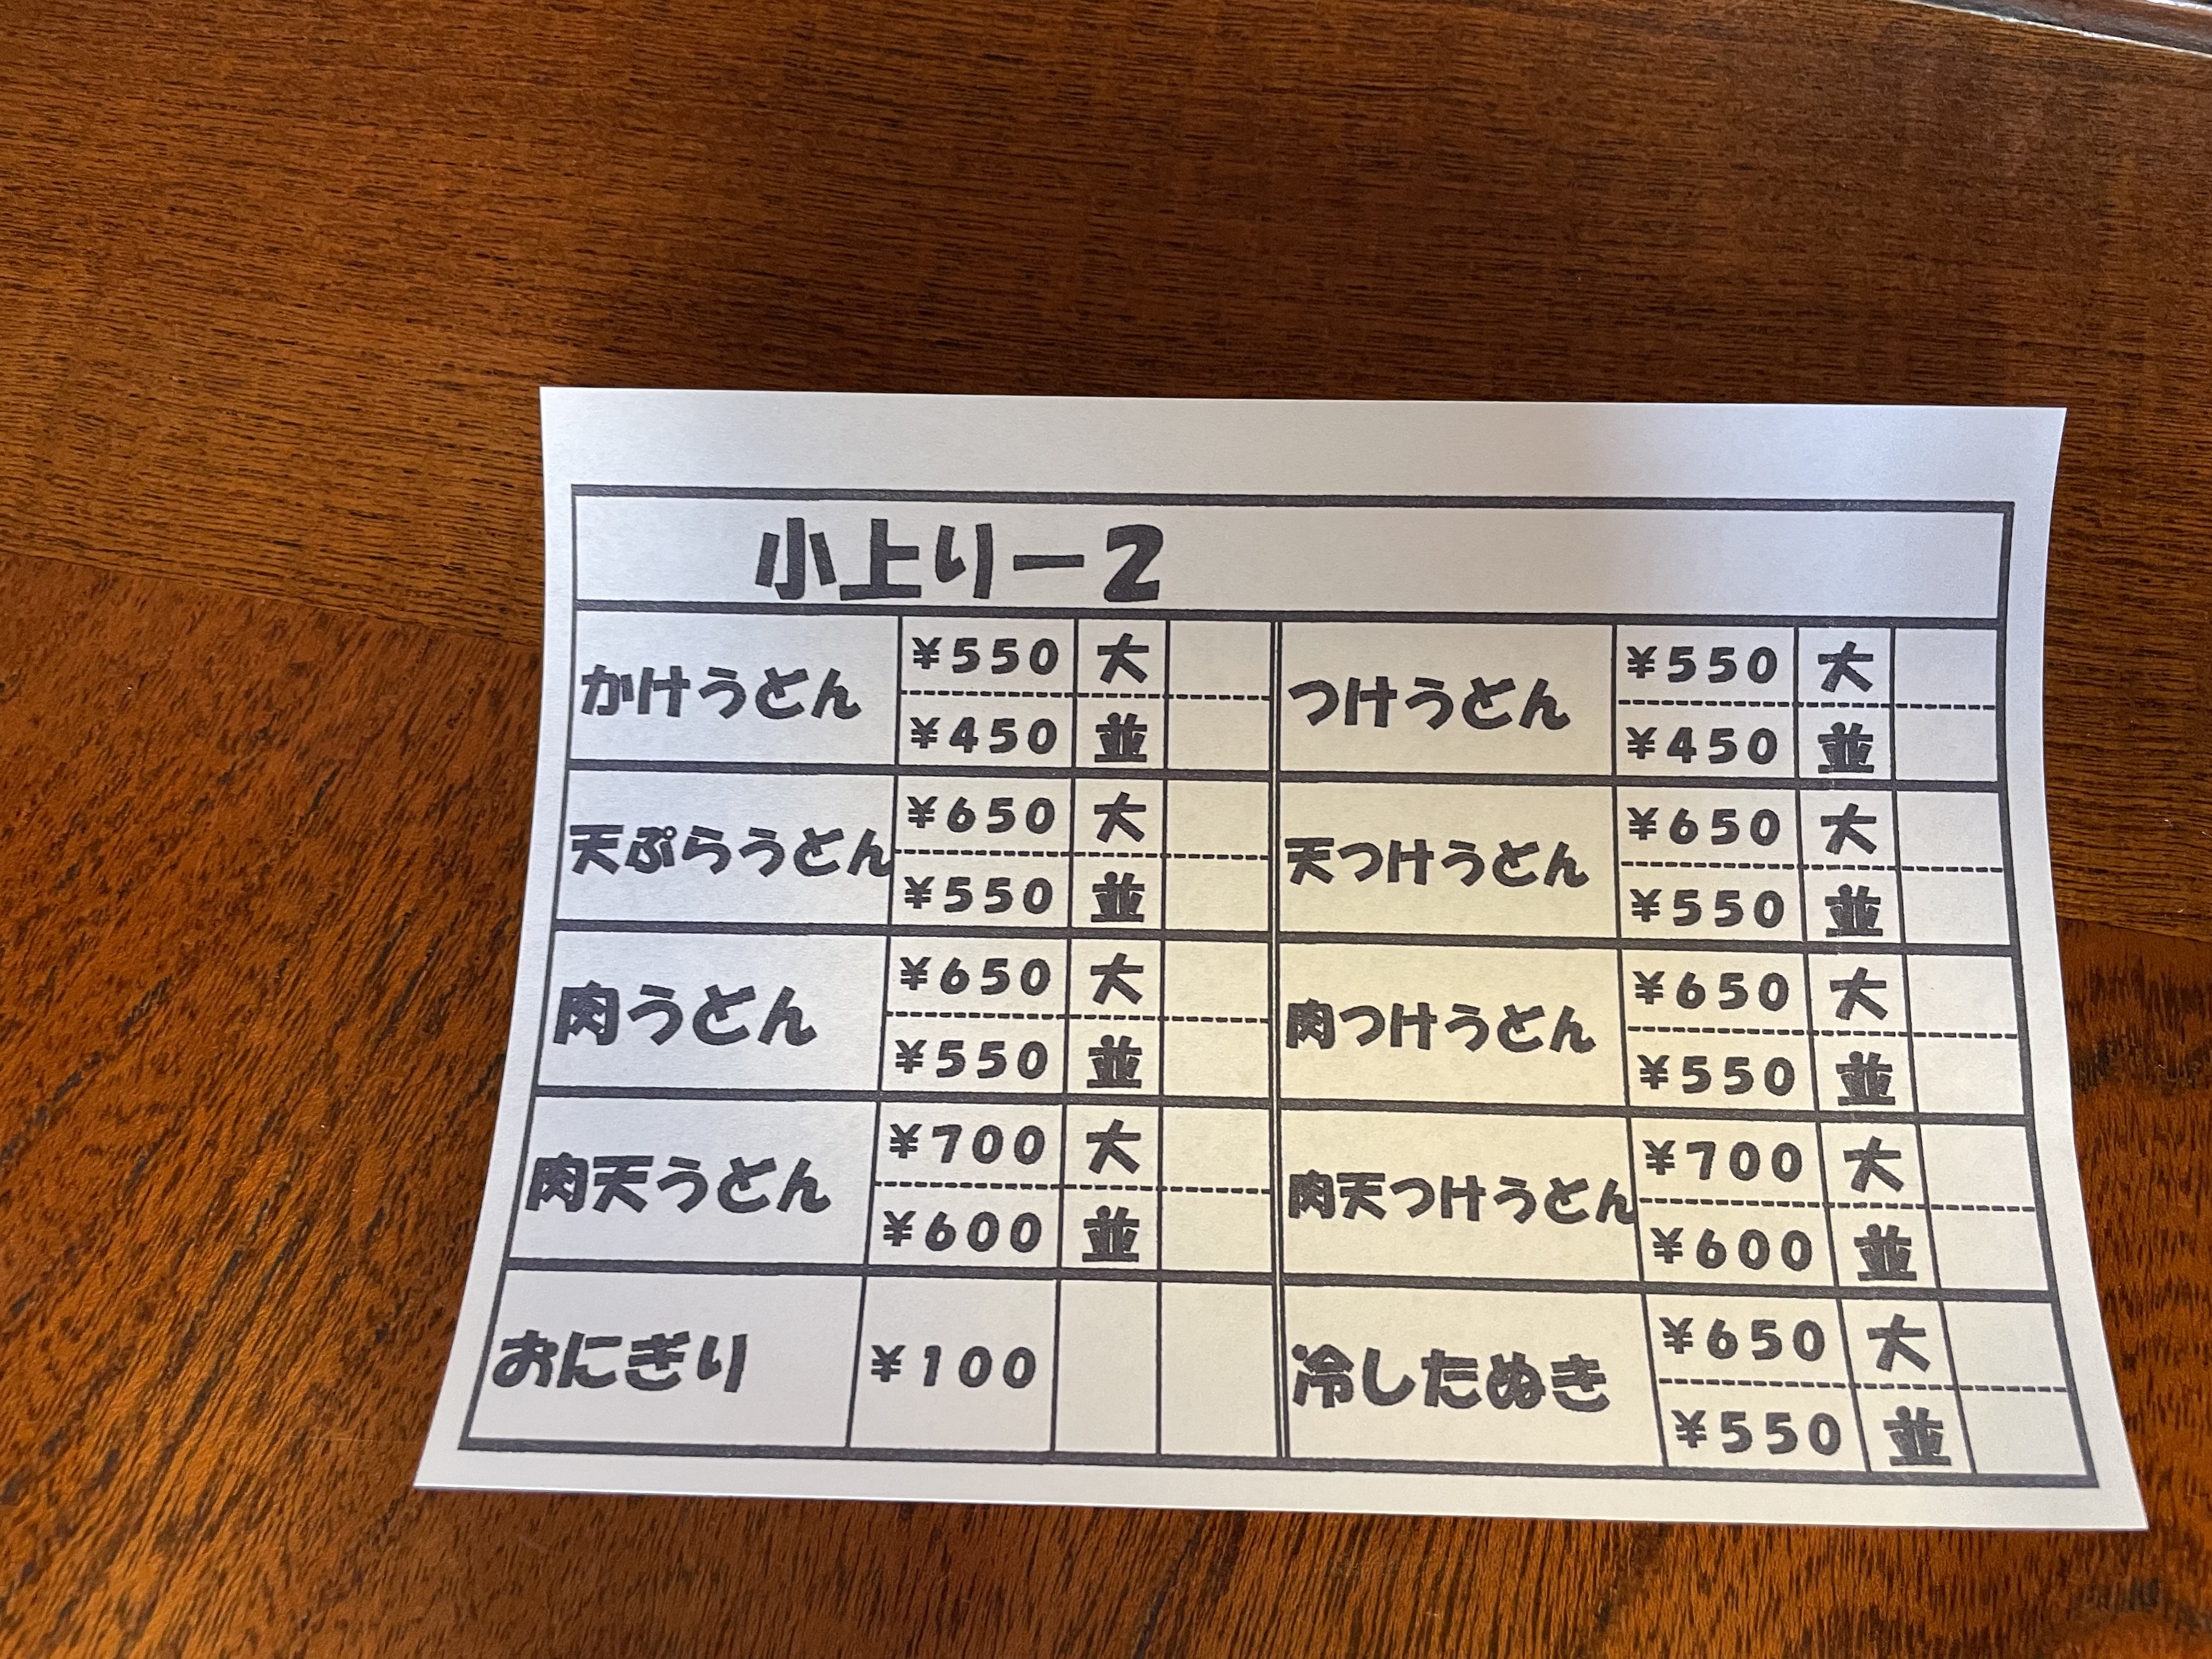 小上りー2
かけうどん ¥550 大 つけうどん ¥550 大
¥450 並 ¥450 並
天ぷらうどん ¥650 大 天つけうどん ¥650 大
¥550 並 ¥550 並
肉うどん ¥650 大 肉つけうどん ¥650 大
¥550 並 ¥550 並
肉天うどん ¥700 大 肉天つけうどん ¥700 大
¥600 並 ¥600 並
おにぎり ¥100 冷したぬき ¥650 大
¥550 並